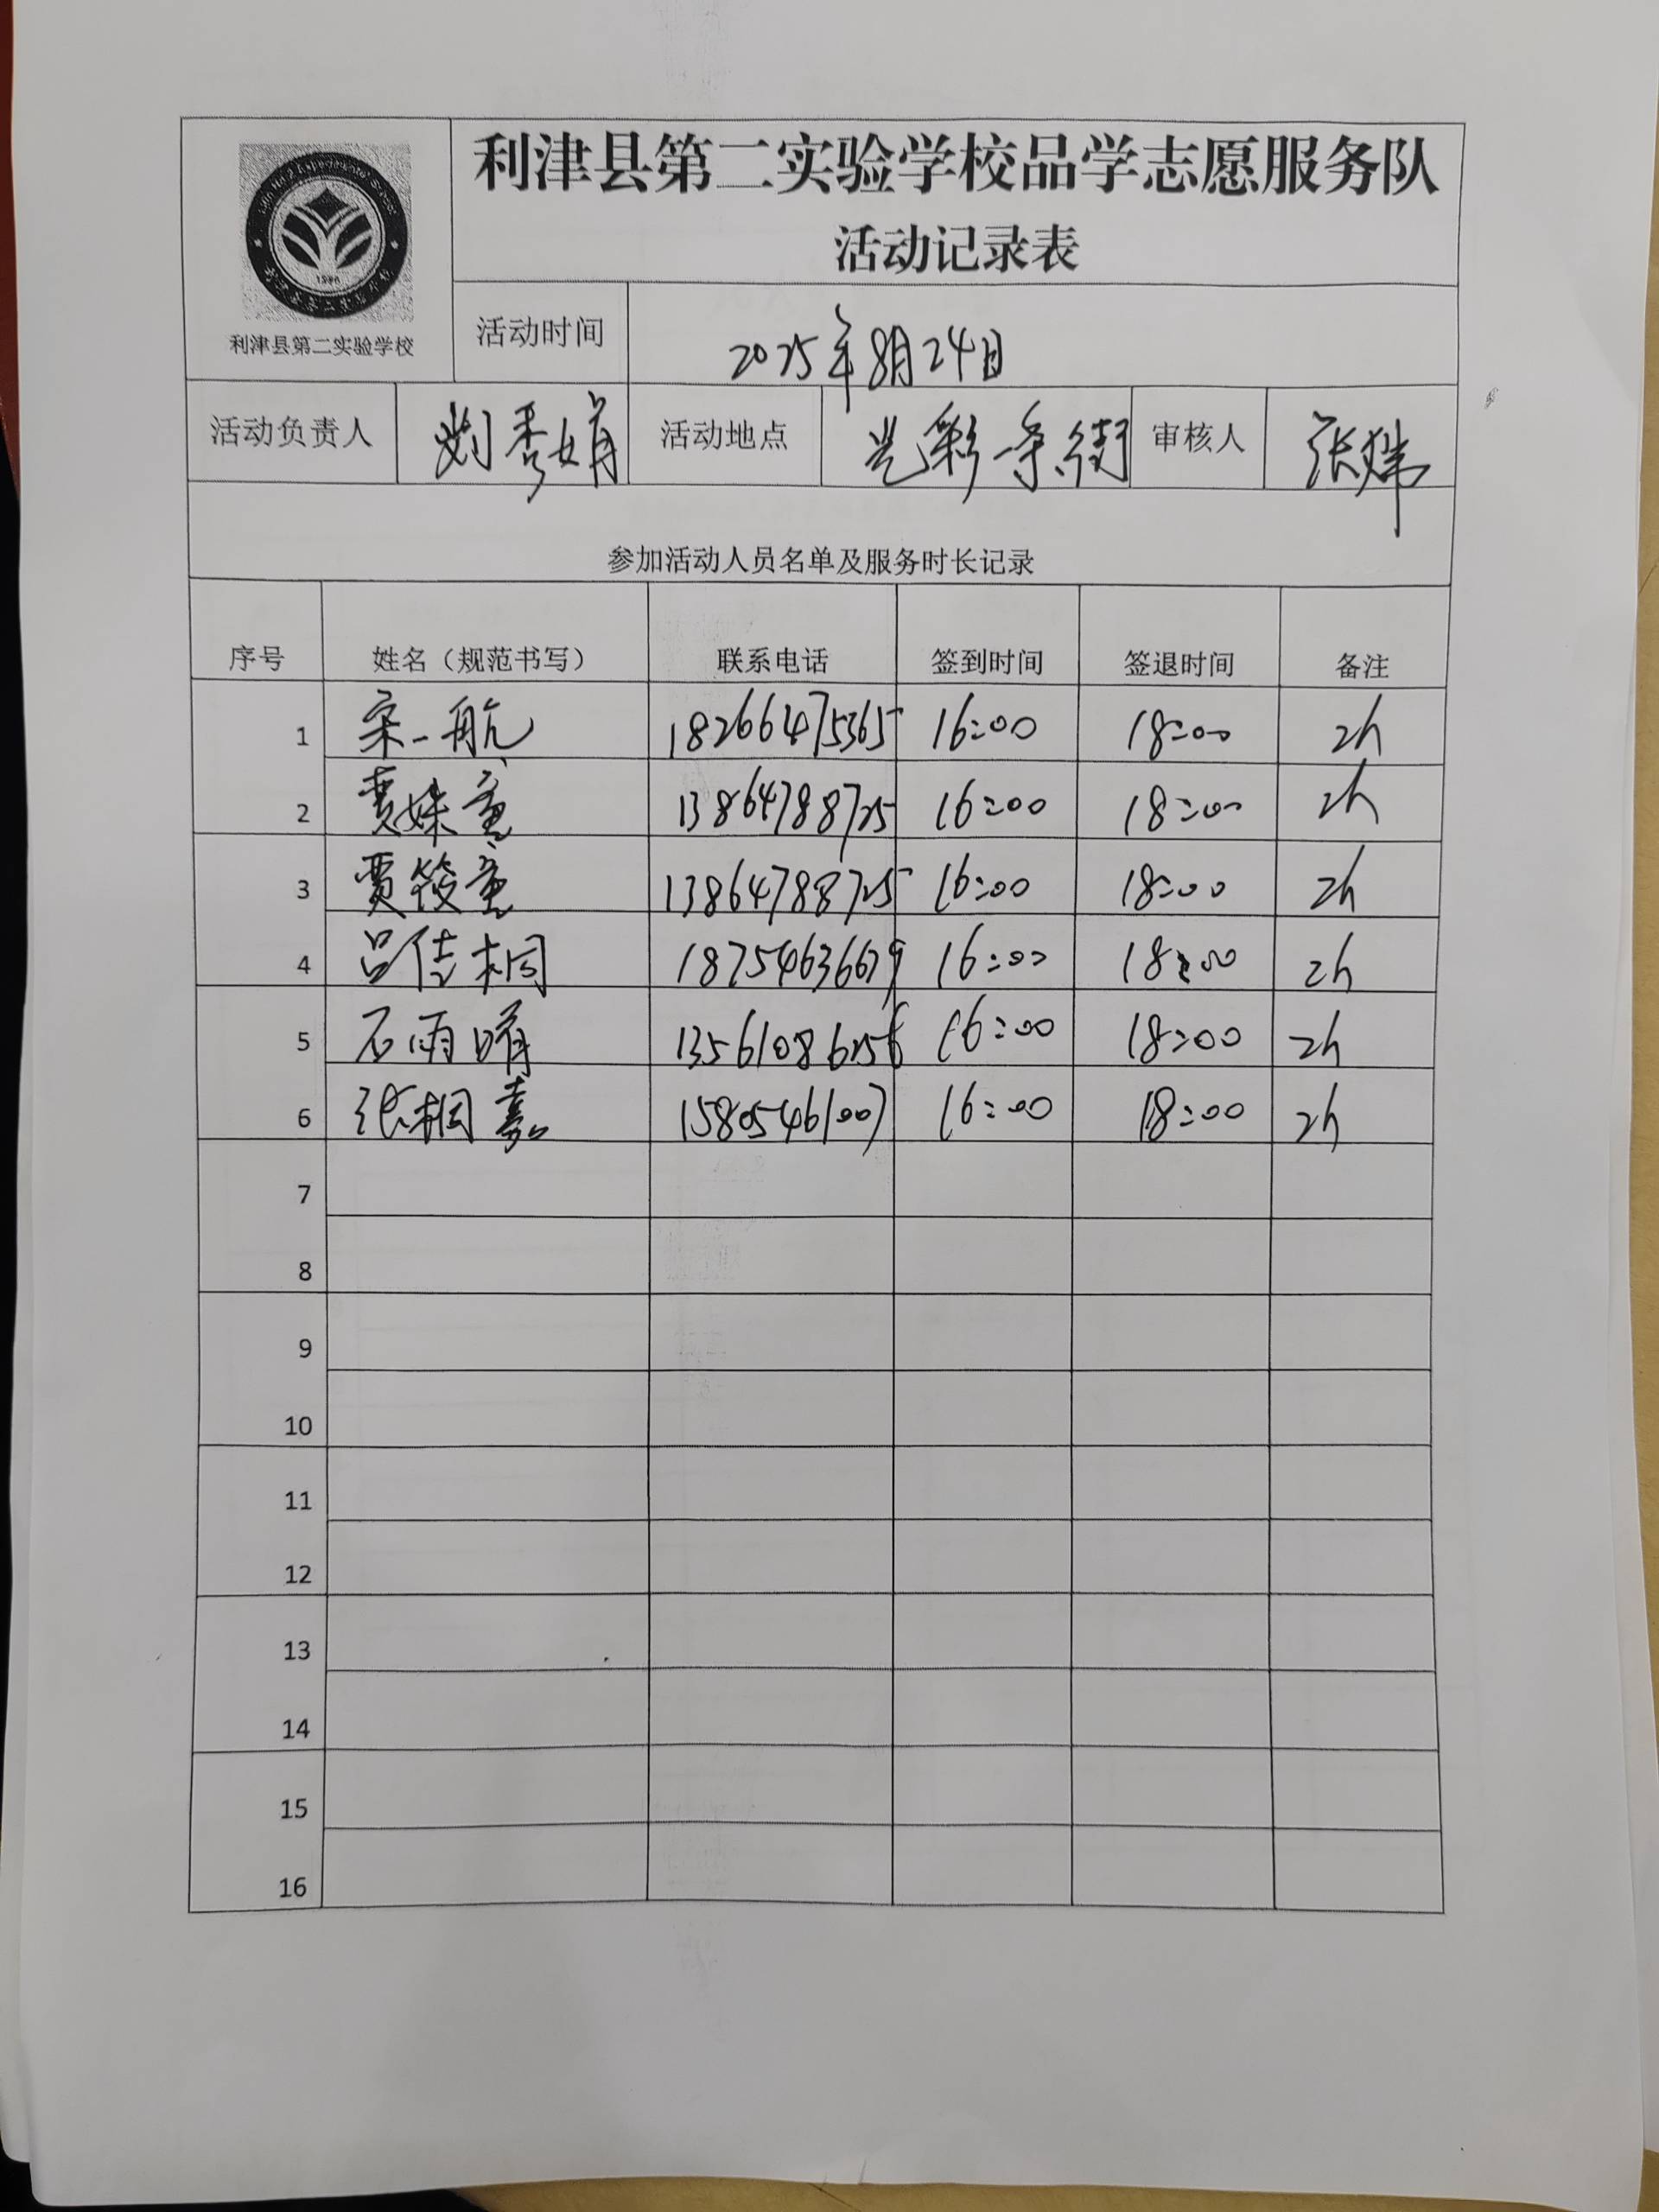 利津县第二实验学校品学志愿服务队
活动记录表
利津县第二实验学校
活动时间 2025年8月24日
活动负责人 刘秀娟 活动地点 光彩一条街 审核人 张炜
参加活动人员名单及服务时长记录
序号 姓名（规范书写） 联系电话 签到时间 签退时间 备注
1 宋一航 18266475365 16:00 18:00 2h
2 贾姝童 13864788725 16:00 18:00 2h
3 贾筱童 13864788725 16:00 18:00 2h
4 吕佳桐 18754636679 16:00 18:00 2h
5 石雨晴 13561086256 16:00 18:00 2h
6 张桐嘉 15805461007 16:00 18:00 2h
7
8
9
10
11
12
13
14
15
16